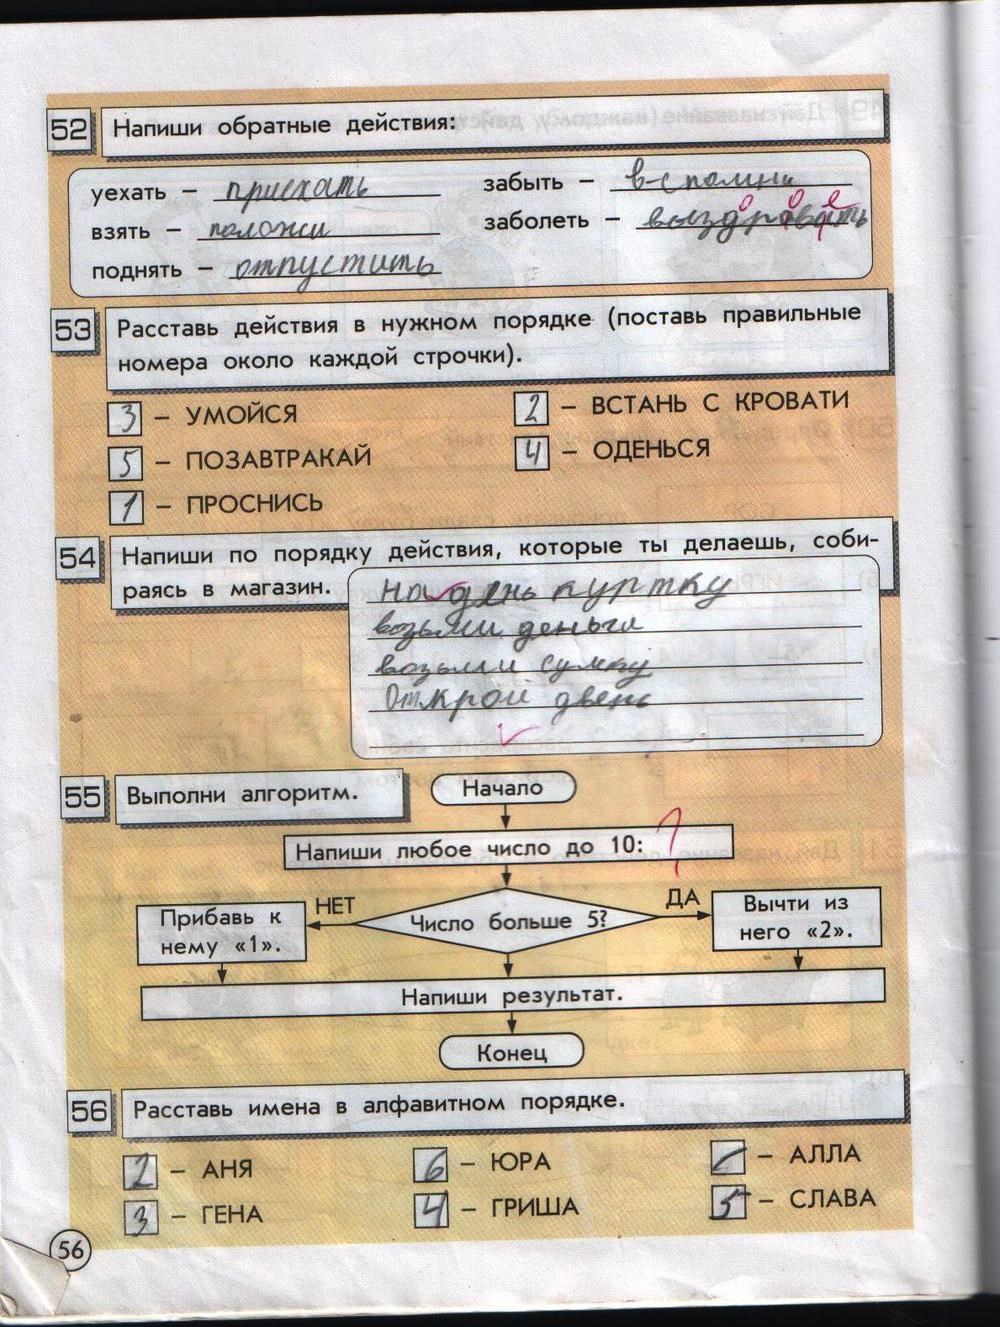 52 Напиши обратные действия:
уехать – приехать забыть – вспомни
взять – положи заболеть –
поднять – отпустить
53 Расставь действия в нужном порядке (поставь правильные
номера около каждой строчки).
3 – УМОЙСЯ 2 – ВСТАНЬ С КРОВАТИ
5 – ПОЗАВТРАКАЙ 4 – ОДЕНЬСЯ
1 – ПРОСНИСЬ
54 Напиши по порядку действия, которые ты делаешь, соби-
раясь в магазин.
На день куртку
возьми деньги
возьми сумку
Открой дверь
55 Выполни алгоритм.
Начало
Напиши любое число до 10: ?
НЕТ Число больше 5? ДА
Прибавь к
нему «1».
Вычти из
него «2».
Напиши результат.
Конец
56 Расставь имена в алфавитном порядке.
2 – АНЯ 6 – ЮРА – АЛЛА
3 – ГЕНА 4 – ГРИША 5 – СЛАВА
56